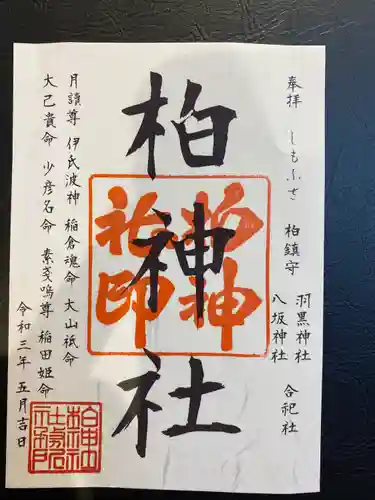 奉拝 しもふさ 柏鎮守
羽黒神社
八坂神社
合祀社
柏神社
柏神
社印
月讀尊 伊氐波神 稲倉魂命 大山祇命
大己貴命 少彦名命 素戔嗚尊 稲田姫命
令和三年 五月吉日